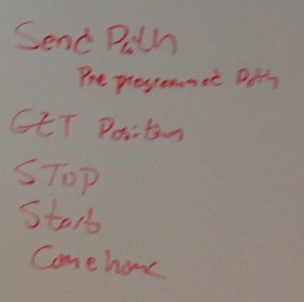 Send Path
Pre programmed Path
GET Position
STOP
Start
Come home